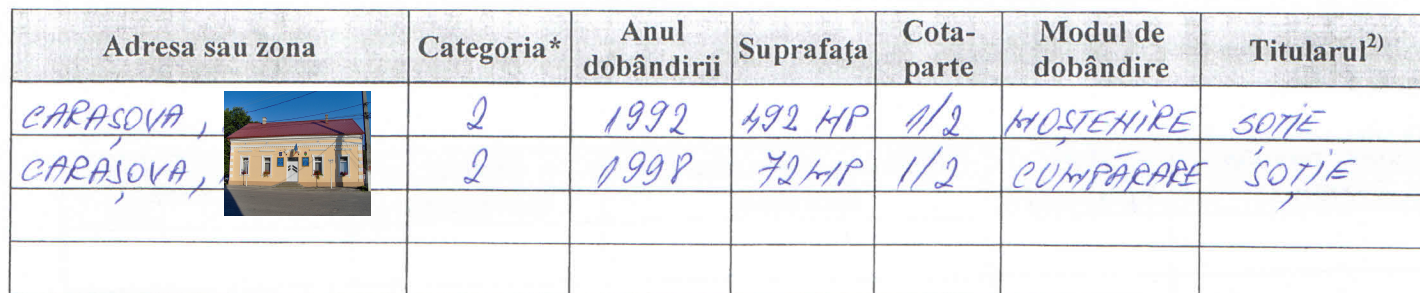 Adresa sau zona Categoria* Anul dobândirii Suprafaţa Cota-parte Modul de dobândire Titularul2)
CARAȘOVA, 2 1992 492 MP 1/2 MOȘTENIRE SOȚIE
CARAȘOVA, 2 1998 72 MP 1/2 CUMPĂRARE SOȚIE